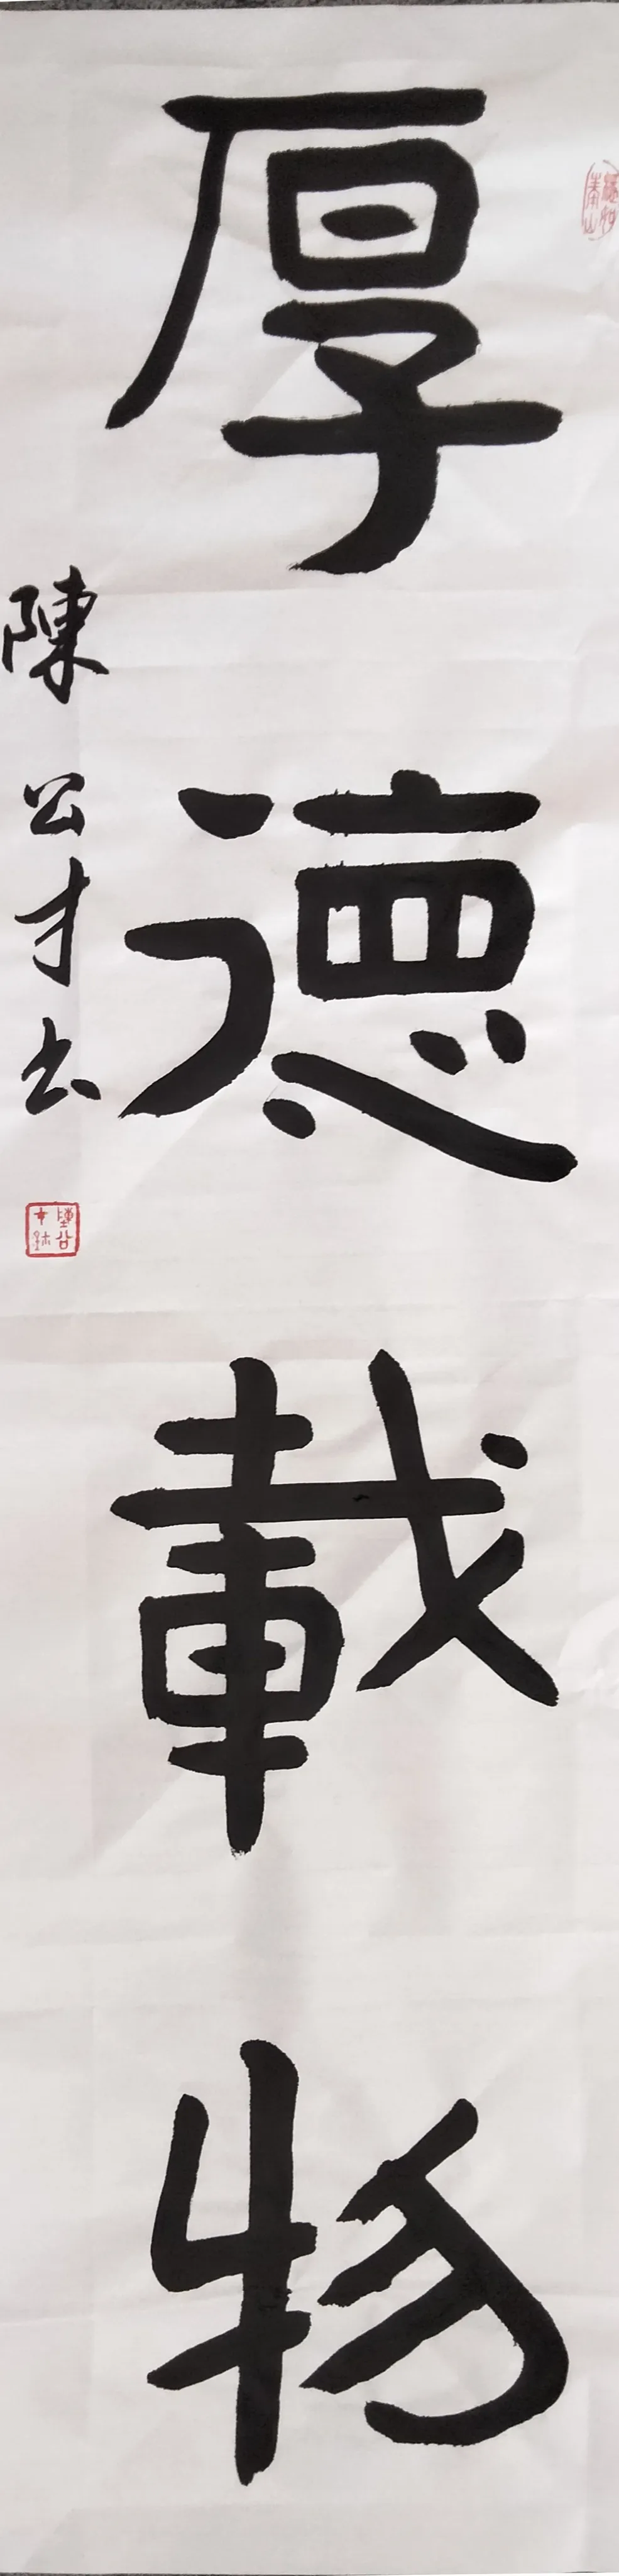 厚德載物
陳公才书